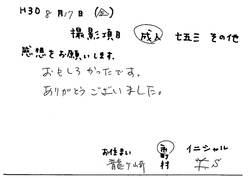 H30 8月17日(金)
撮影項目 成人 七五三 その他
感想をお願いします。
おもしろかったです。
ありがとうございました。
お住まい 市町村 イニシャル
龍ヶ崎 S